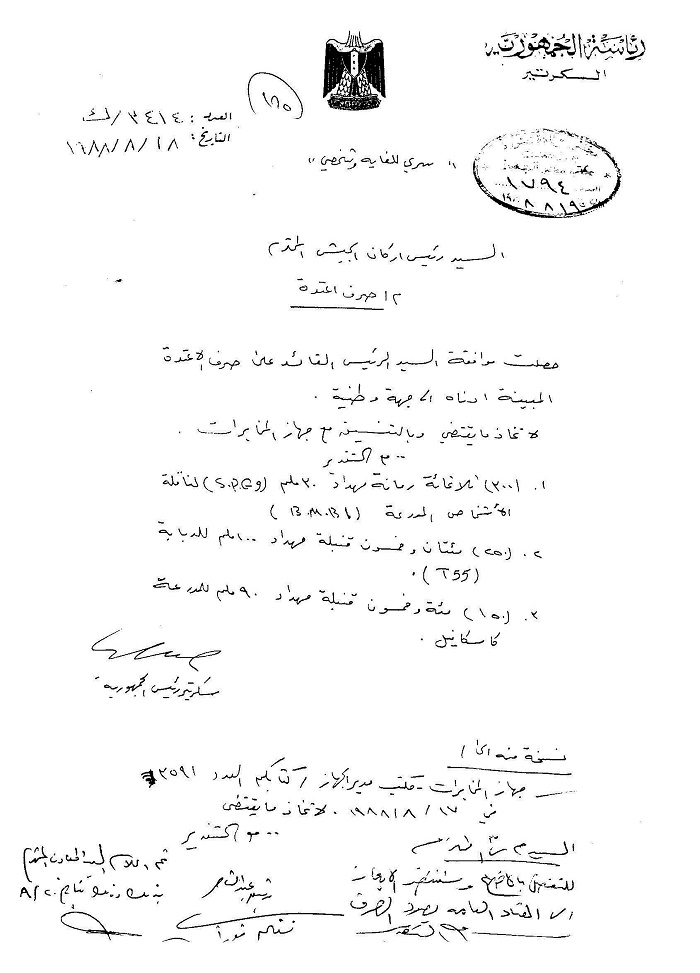 رئاسة الجمهورية
السكرتير
١٨٥
العدد : ٣٤١٤/ك
التاريخ : ١٩٨٨/٨/١٨
١٧٩٤
" سري للغاية وشخصي "
السيد رئيس اركان الجيش المحترم
م/ صرف اعتدة
حصلت موافقة السيد الرئيس القائد على صرف الاعتدة
المبينة ادناه الى جهة وطنية .
لاتخاذ مايقتضي وبالتنسيق مع جهاز المخابرات .
مع التقدير
١. (٣٠٠) ثلاثمائة رمانة مهداد ملم (S.P.G9) لناقلة
الأشخاص المدرعة (B.M.B1)
٢. (٢٥٠) مئتان وخمسون قنبلة مهداد ١٠٠ ملم للدبابة
(T55) .
٣. (١٥٠) مئة وخمسون قنبلة مهداد ٩٠ ملم للمدرعة
كاسكافيل .
سكرتير رئيس الجمهورية
نسخة منه الى /
جهاز المخابرات - مكتب مدير الجهاز / كتابكم العدد ٣٥٩١
في ١٩٨٨/٨/١٧ . لاتخاذ مايقتضي
مع التقدير
السيد
للتفضل